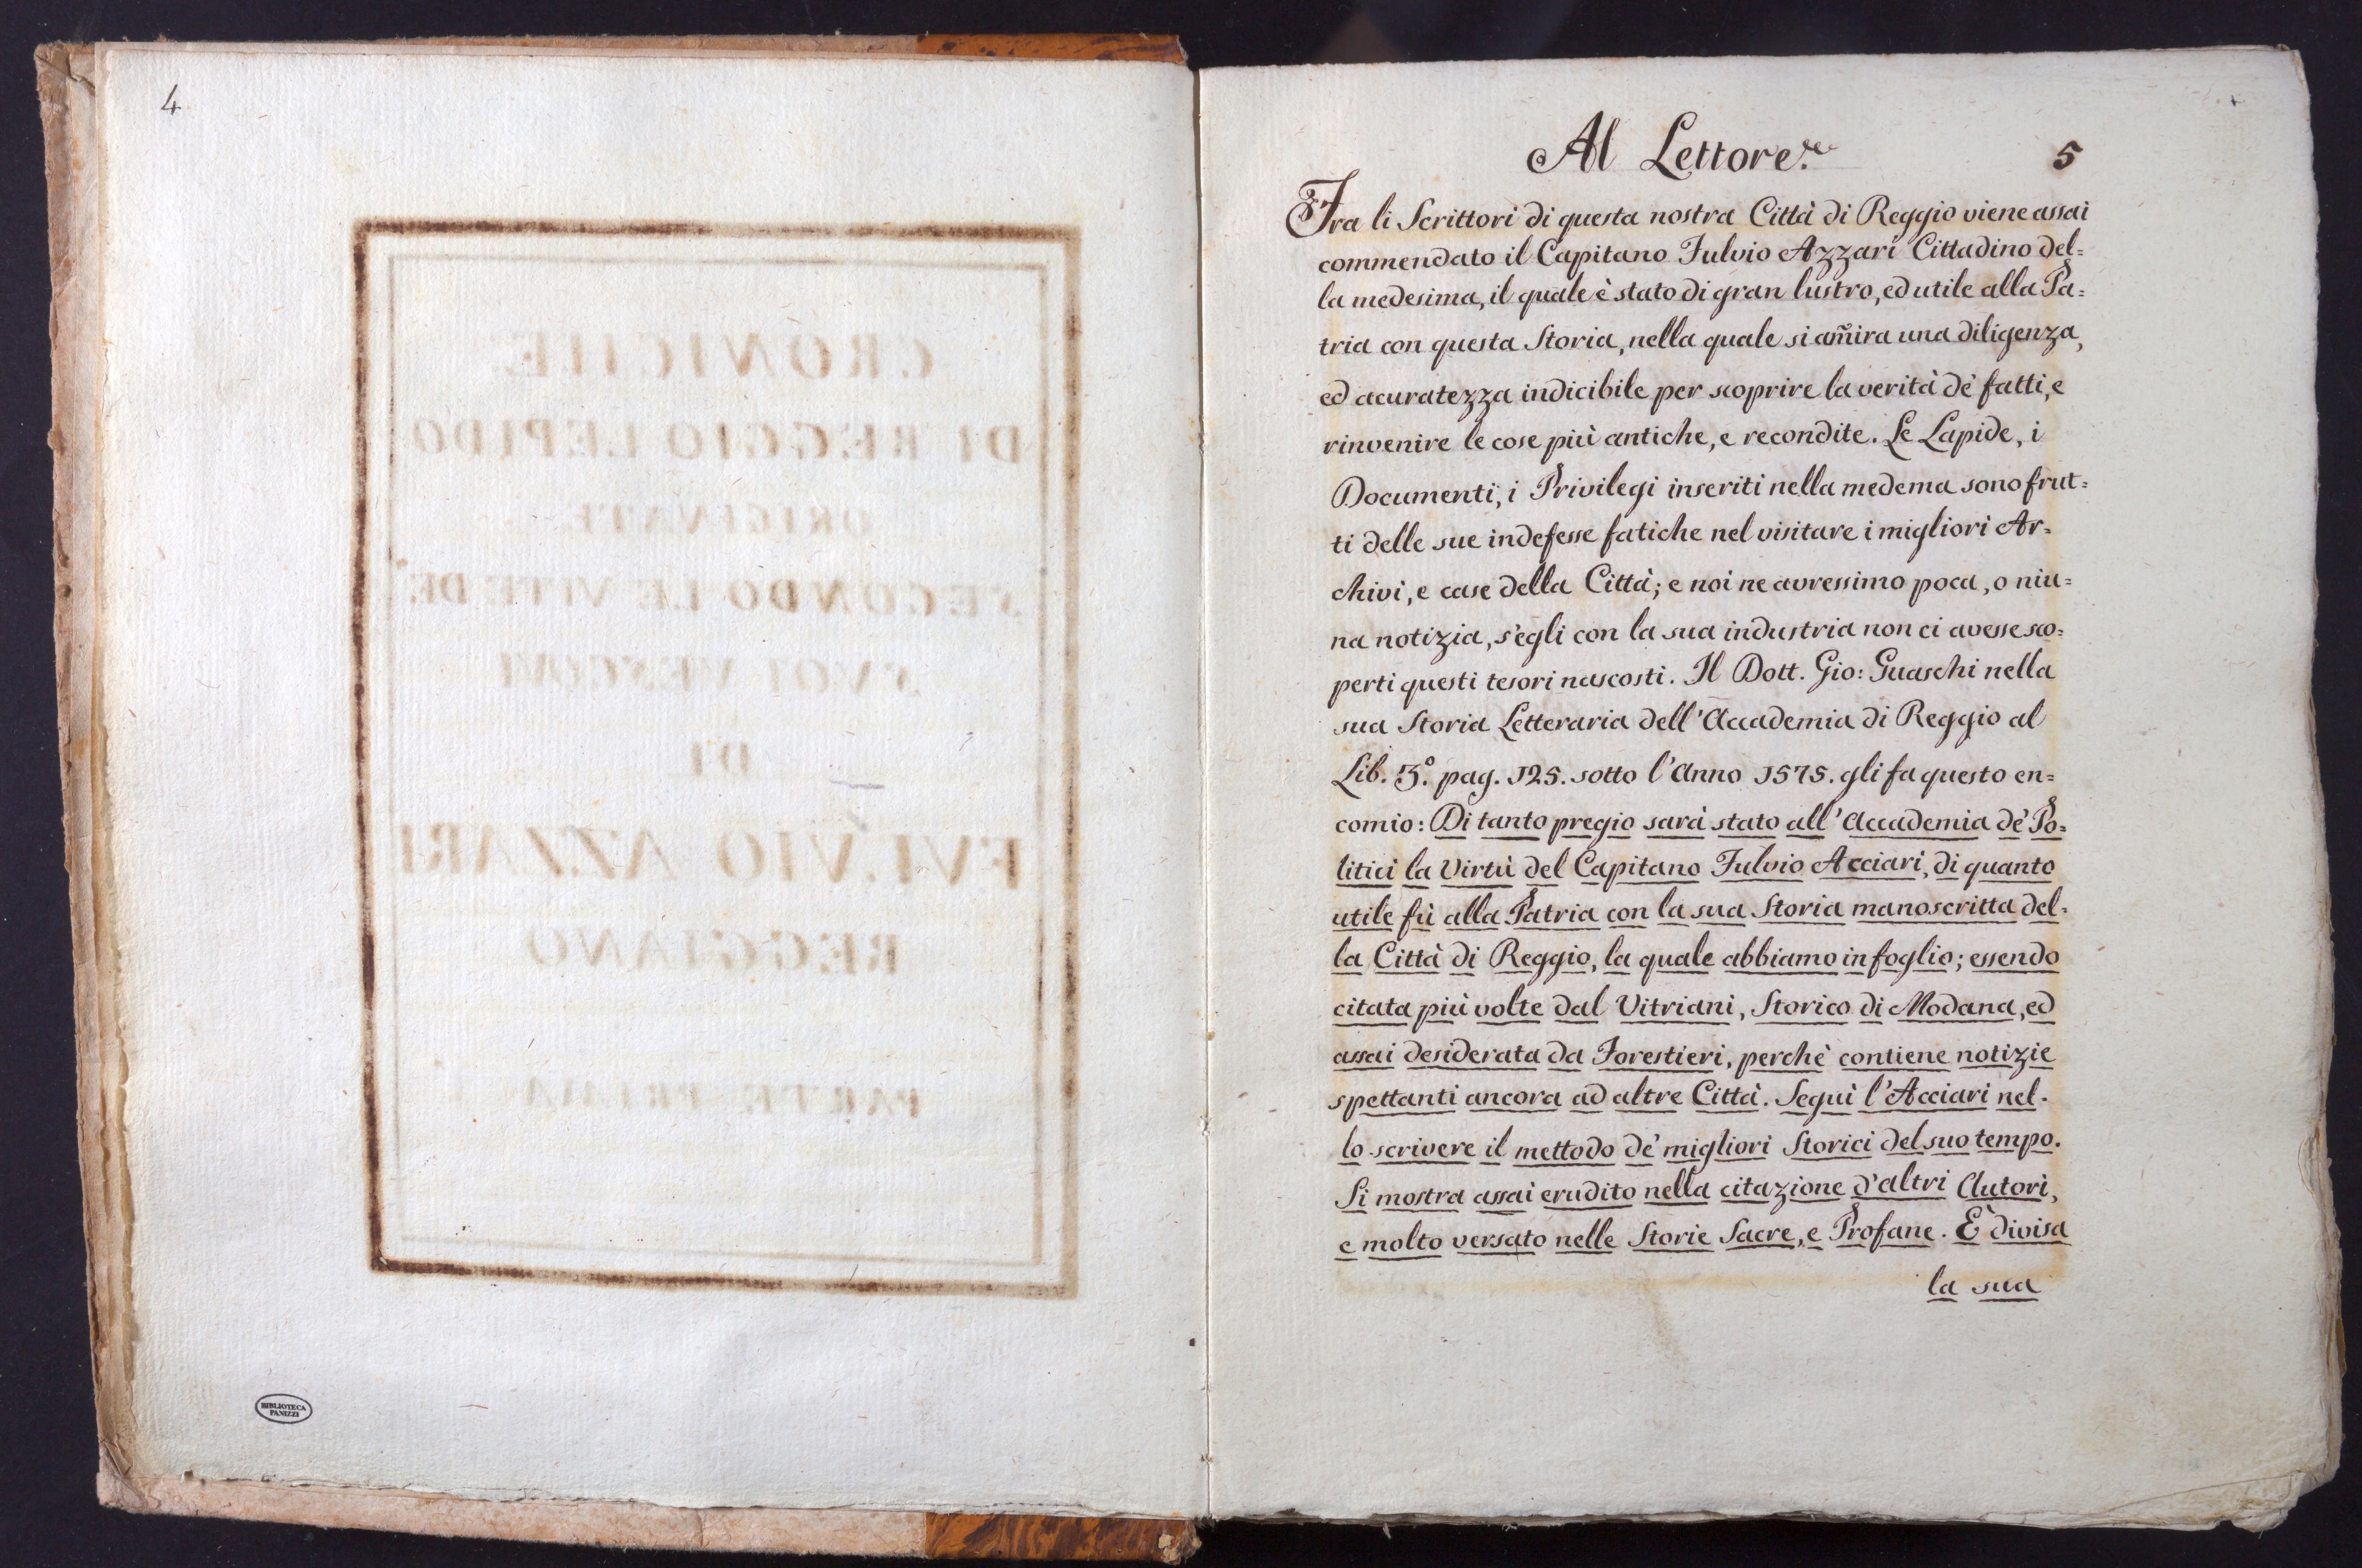 4
CRONICHE
DI REGGIO LEPIDO
ORIGINATE
SECONDO LE VITE DE'
SVOI VESCOVI
DI
FVLVIO AZZARI
REGGIANO
PARTE PRIMA
BIBLIOTECA
PANIZZI
Al Lettore.
5
Fra li Scrittori di questa nostra Città di Reggio viene assai
commendato il Capitano Fulvio Azzari Cittadino del=
la medesima, il quale è stato di gran lustro, ed utile alla Pa=
tria con questa Storia, nella quale si am̃ira una diligenza,
ed acuratezza indicibile per scoprire la verità de' fatti, e
rinvenire le cose più antiche, e recondite. Le Lapide, i
Documenti, i Privilegi inseriti nella medema sono frut=
ti delle sue indefesse fatiche nel visitare i migliori Ar=
chivi, e case della Città; e noi ne avressimo poca, o niu=
na notizia, s'egli con la sua industria non ci avesse sco=
perti questi tesori nascosti. Il Dott. Gio: Guaschi nella
sua Storia Letteraria dell'Accademia di Reggio al
Lib. 3.º pag. 125. sotto l'Anno 1575. gli fa questo en=
comio: Di tanto pregio sarà stato all'Accademia de' Po=
litici la Virtù del Capitano Fulvio Acciari, di quanto
utile fù alla Patria con la sua Storia manoscritta del=
la Città di Reggio, la quale abbiamo in foglio; essendo
citata più volte dal Vitriani, Storico di Modana, ed
assai desiderata da Forestieri, perchè contiene notizie
spettanti ancora ad altre Città. Seguì l'Acciari nel=
lo scrivere il mettodo de' migliori Storici del suo tempo.
Si mostra assai erudito nella citazione d'altri Autori,
e molto versato nelle Storie Sacre, e Profane. È divisa
la sua